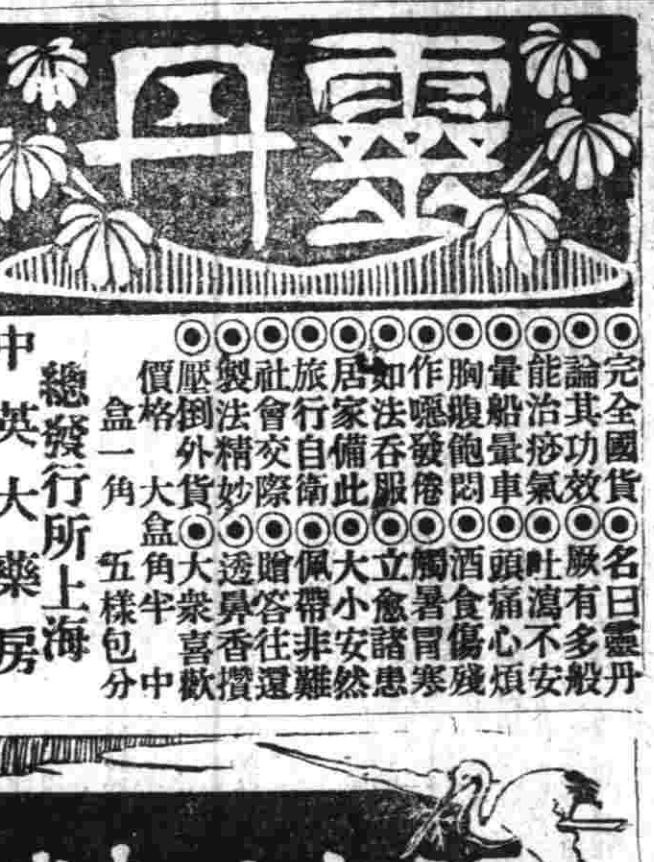 靈丹
◉完全國貨◉名曰靈丹
◉論其功效◉厥有多般
◉能治痧氣◉吐瀉不安
◉暈船暈車◉頭痛心煩
◉胸腹飽悶◉酒食傷殘
◉作嘔發倦◉觸暑冒寒
◉如法吞服◉立愈諸患
◉居家備此◉大小安然
◉旅行自衛◉佩帶非難
◉社會交際◉贈答往還
◉製法精妙◉透鼻香攢
◉壓倒外貨◉大衆喜歡
價格 大盒角半 中
盒一角 五樣包分
總發行所上海
中英大藥房